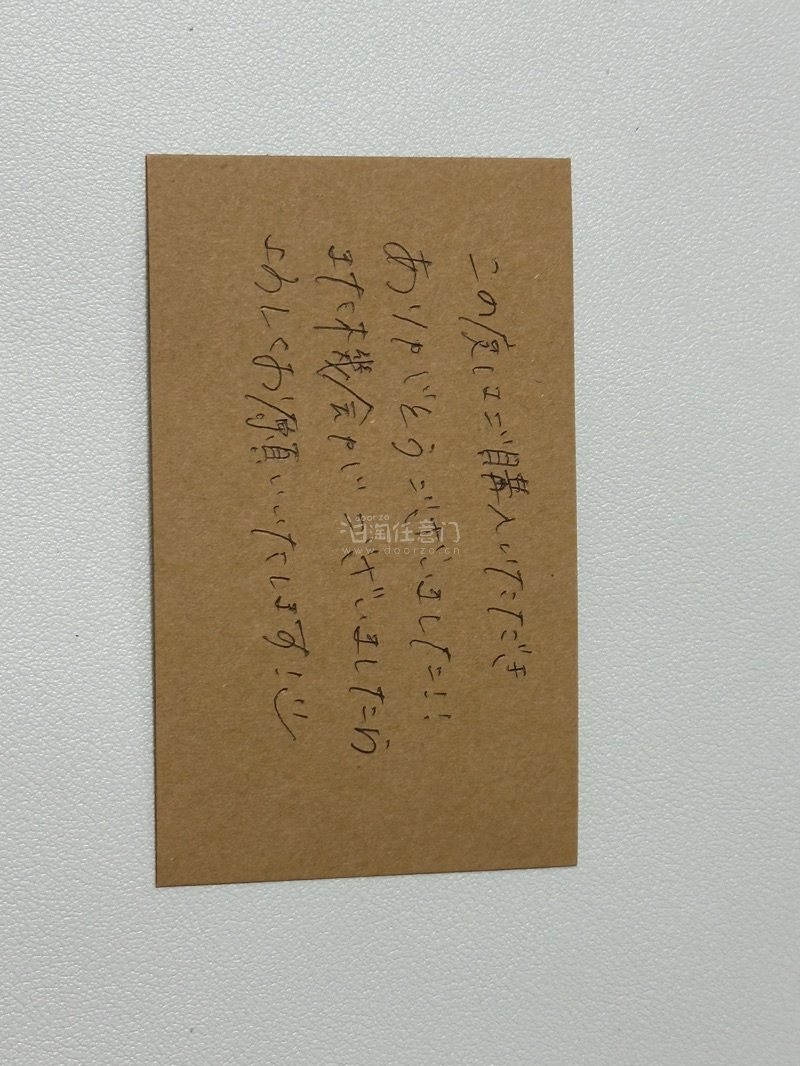 この度はご購入いただき
ありがとうございました!!
また機会がございましたら
よろしくお願いいたします!
doorzo
淘任意门
www.doorzo.cn